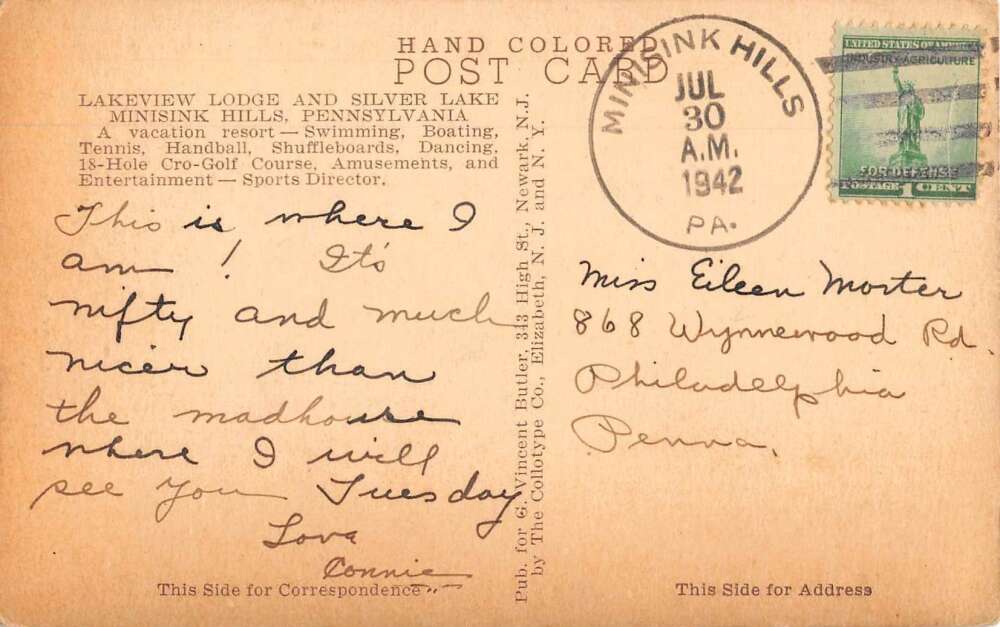 HAND COLORED
POST CARD
LAKEVIEW LODGE AND SILVER LAKE
MINISINK HILLS, PENNSYLVANIA
A vacation resort — Swimming, Boating,
Tennis, Handball, Shuffleboards, Dancing,
18-Hole Cro-Golf Course, Amusements, and
Entertainment — Sports Director.
This is where I
am! It's
nifty and much
nicer than
the madhouse
where I will
see you Tuesday
Love
Connie
This Side for Correspondence
Pub. for G. Vincent Butler, 343 High St., Newark, N. J.
by The Collotype Co., Elizabeth, N. J. and N. Y.
MINISINK HILLS
JUL
30
A.M.
1942
PA.
UNITED STATES OF AMERICA
INDUSTRY AGRICULTURE
FOR DEFENSE
POSTAGE 1 CENT
Miss Eileen Morter
868 Wynnewood Rd.
Philadelphia
Penna.
This Side for Address